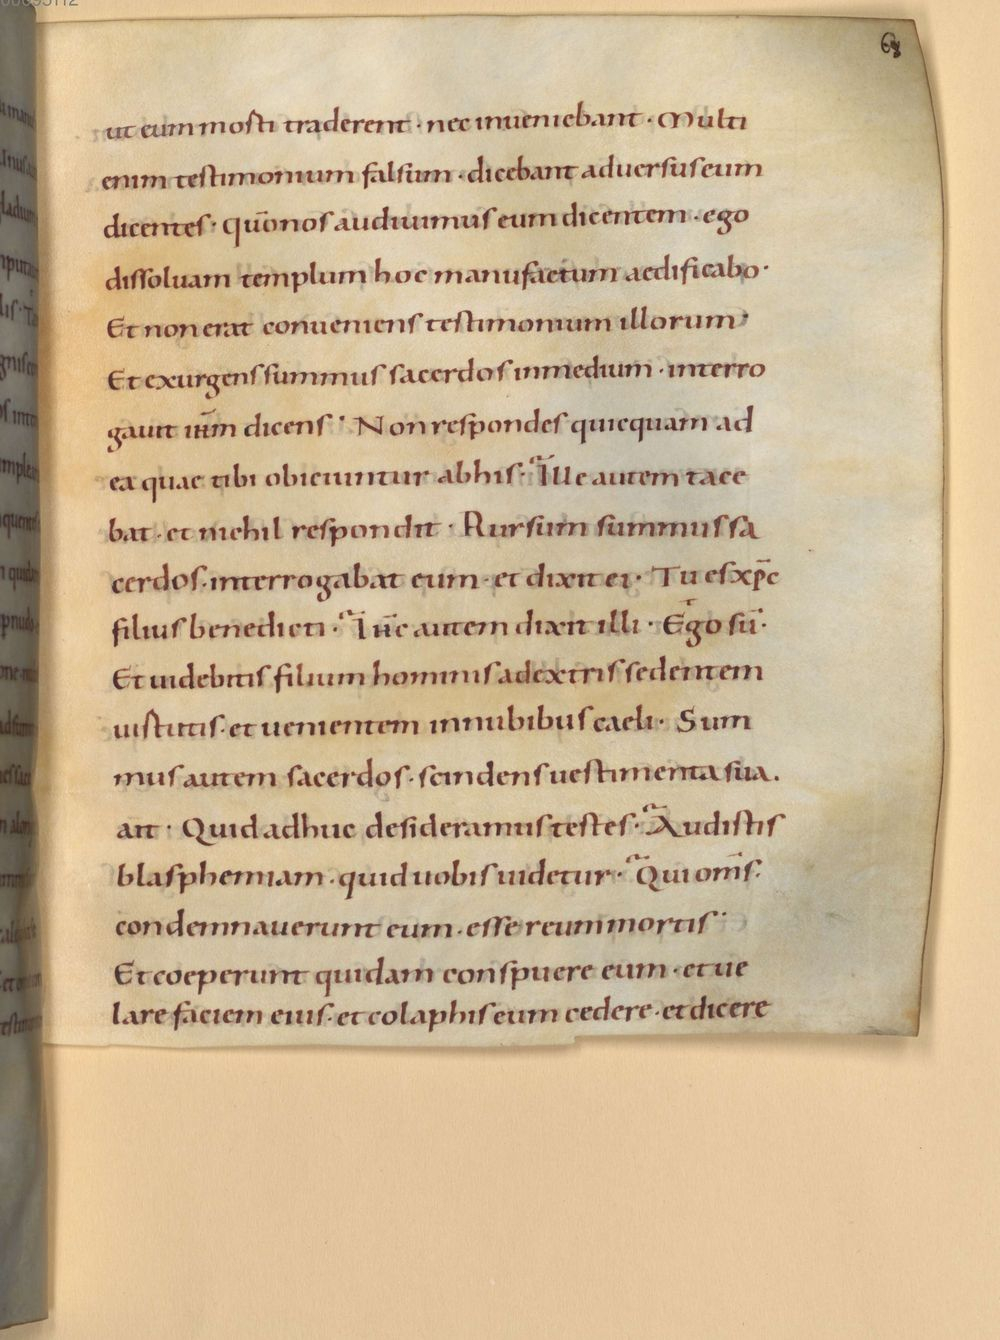 68
ut eum mosti traderent · nec inueniebant · Multi
enim testimonium falsum · dicebant aduersus eum
dicentes · qūo nos audiuimus eum dicentem · ego
dissoluam templum hoc manufactum aedificabo ·
Et non erat conueniens testimonium illorum ·
Et exurgens summus sacerdos in medium · interro
gauit ih̄m dicens · Non respondes quicquam ad
ea quae tibi obiciuntur ab his · Ille autem tace
bat · et nichil respondit · Rursum summus sa
cerdos · interrogabat eum · et dixit ei · Tu es xp̄c
filius benedicti · Ih̄c autem dixit illi · Ego sū ·
Et uidebitis filium hominis a dextris sedentem
uistutis · et uenientem in nubibus caeli · Sum
mus autem sacerdos · scindens uestimenta sua .
ait · Quid adhuc desideramus testes · Audistis
blasphemiam · quid uobis uidetur · Qui om̄s ·
condemnauerunt eum · esse reum mortis ·
Et coeperunt quidam conspuere eum · et ue
lare faciem eius · et colaphis eum cedere · et dicere